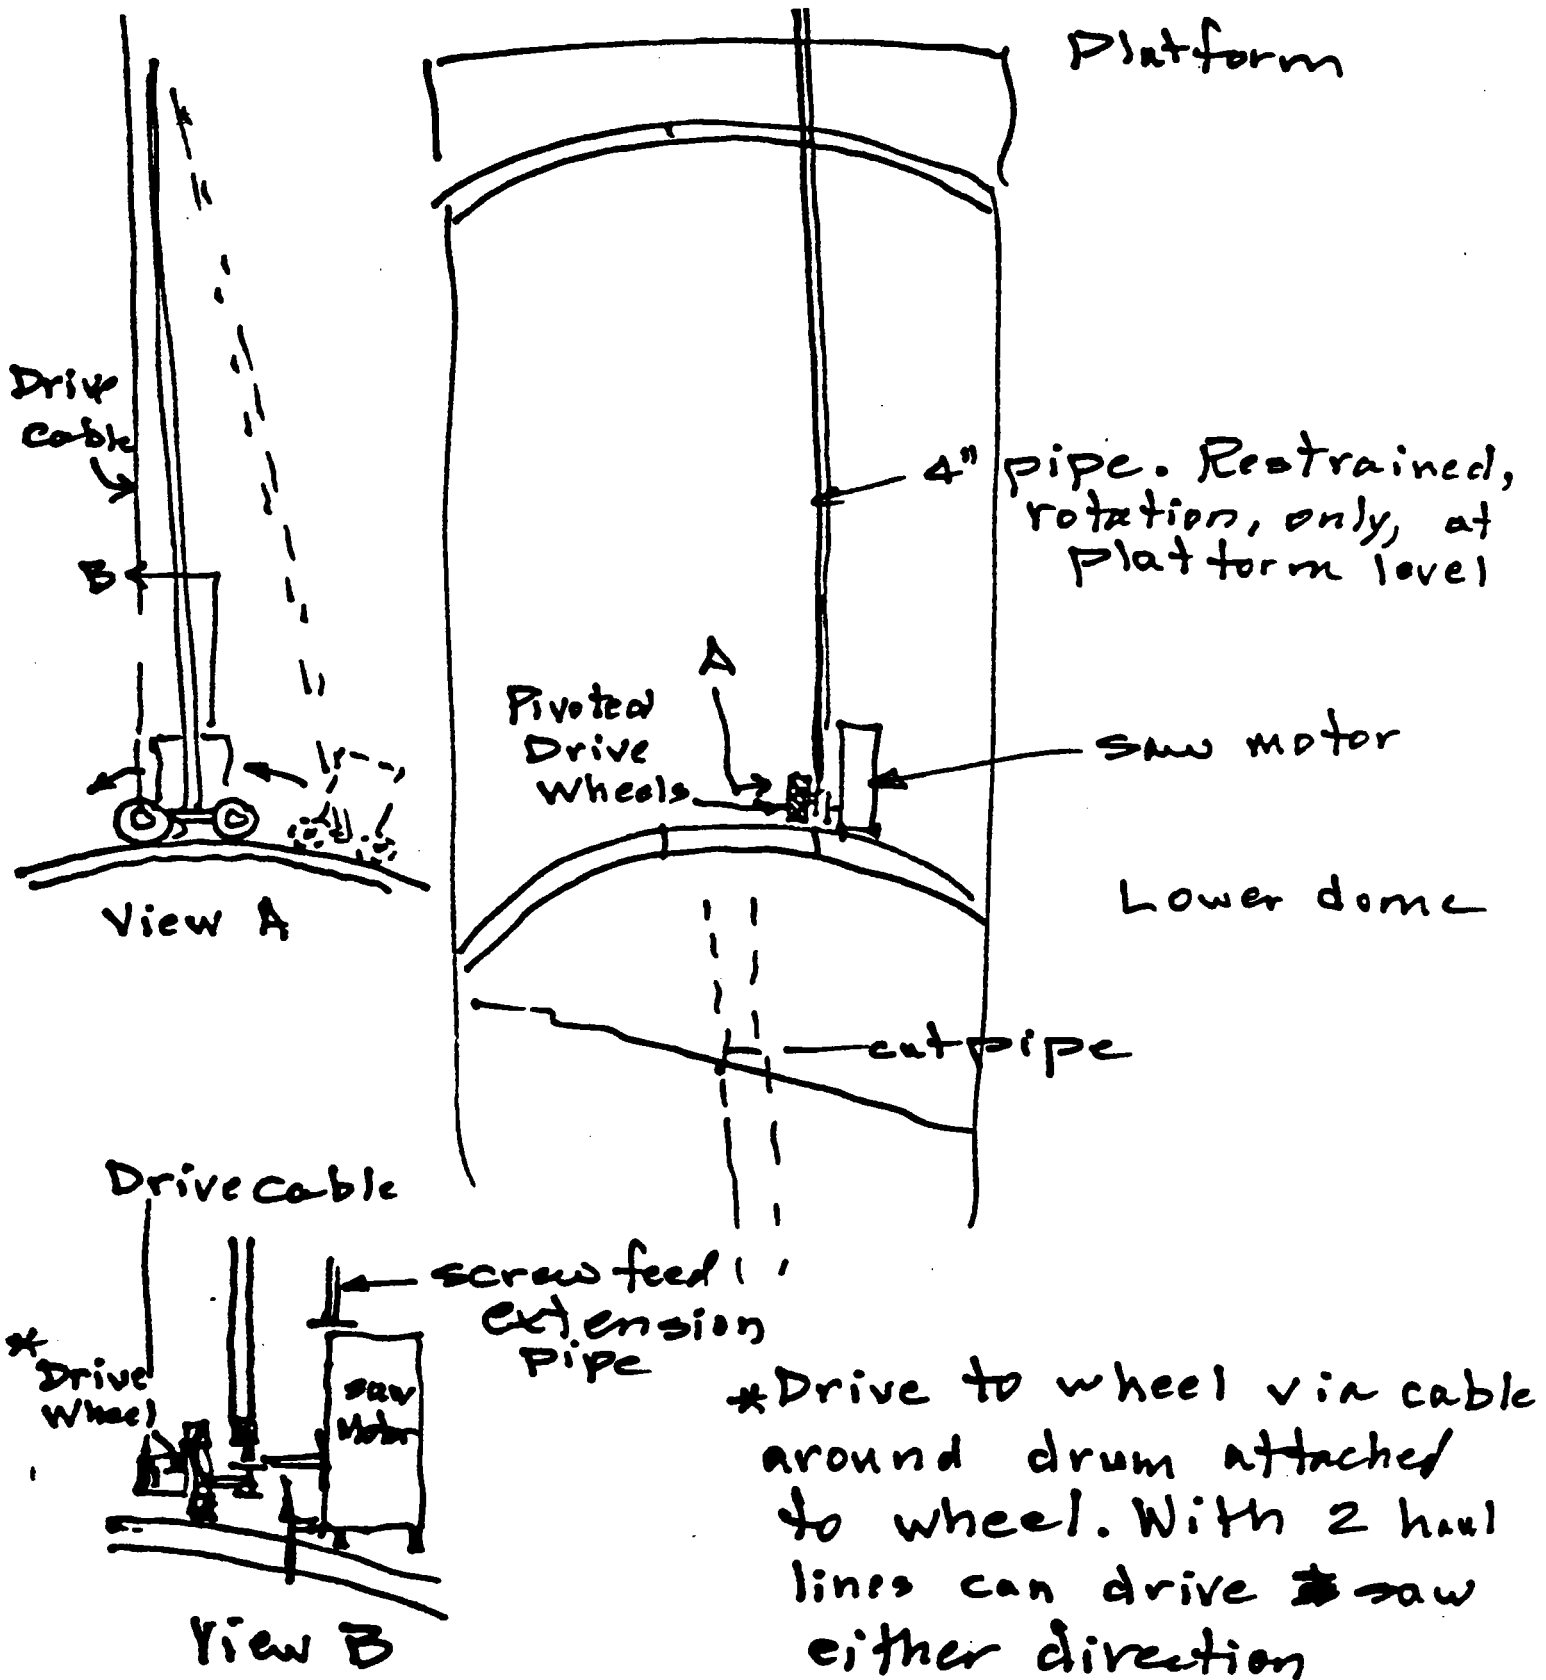 Platform
Drive
cable
4" pipe. Restrained,
rotation, only, at
platform level
B
A
Pivoted
Drive
Wheels
saw motor
View A
Lower dome
cut pipe
Drive cable
screw feed
extension
pipe
*
Drive
Wheel
saw
Motor
View B
*Drive to wheel via cable
around drum attached
to wheel. With 2 haul
lines can drive saw
either direction